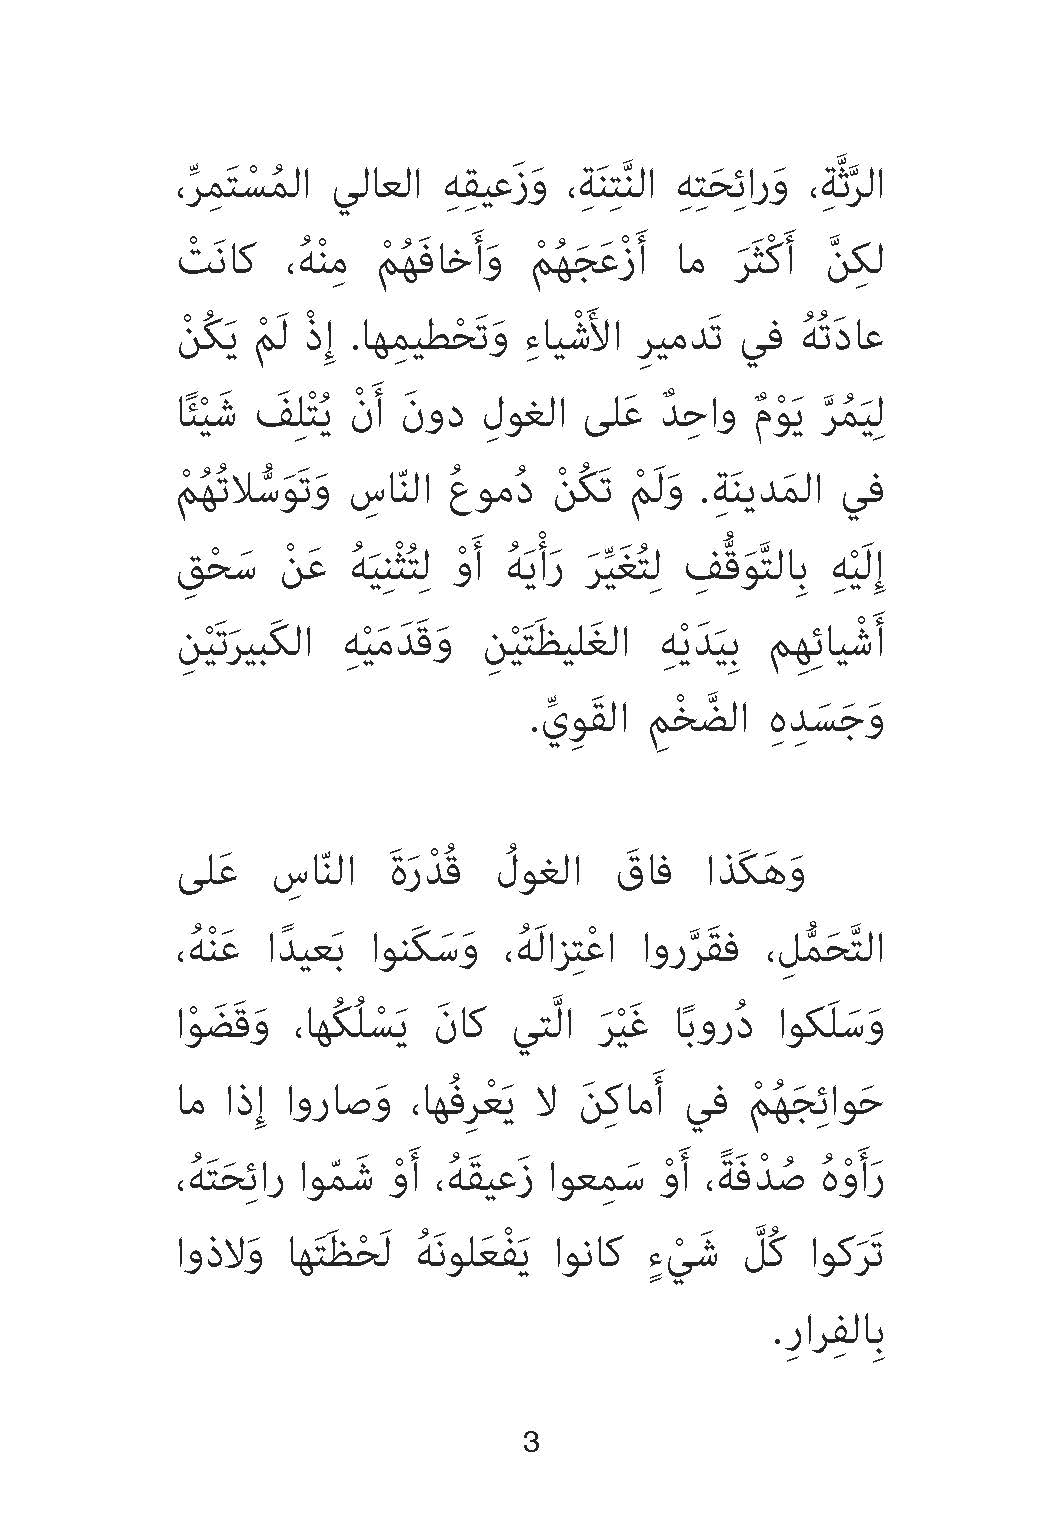 الرَّثَّةِ، وَرائِحَتِهِ النَّتِنَةِ، وَزَعيقِهِ العالي المُسْتَمِرِّ،
لكِنَّ أَكْثَرَ ما أَزْعَجَهُمْ وَأَخافَهُمْ مِنْهُ، كانَتْ
عادَتُهُ في تَدميرِ الأَشْياءِ وَتَحْطيمِها. إِذْ لَمْ يَكُنْ
لِيَمُرَّ يَوْمٌ واحِدٌ عَلى الغولِ دونَ أَنْ يُتْلِفَ شَيْئًا
في المَدينَةِ. وَلَمْ تَكُنْ دُموعُ النّاسِ وَتَوَسُّلاتُهُمْ
إِلَيْهِ بِالتَّوَقُّفِ لِتُغَيِّرَ رَأْيَهُ أَوْ لِتُثْنِيَهُ عَنْ سَحْقِ
أَشْيائِهِم بِيَدَيْهِ الغَليظَتَيْنِ وَقَدَمَيْهِ الكَبيرَتَيْنِ
وَجَسَدِهِ الضَّخْمِ القَوِيِّ.
وَهَكَذا فاقَ الغولُ قُدْرَةَ النّاسِ عَلى
التَّحَمُّلِ، فَقَرَّروا اعْتِزالَهُ، وَسَكَنوا بَعيدًا عَنْهُ،
وَسَلَكوا دُروبًا غَيْرَ الَّتي كانَ يَسْلُكُها، وَقَضَوْا
حَوائِجَهُمْ في أَماكِنَ لا يَعْرِفُها، وَصاروا إِذا ما
رَأَوْهُ صُدْفَةً، أَوْ سَمِعوا زَعيقَهُ، أَوْ شَمّوا رائِحَتَهُ،
تَرَكوا كُلَّ شَيْءٍ كانوا يَفْعَلونَهُ لَحْظَتَها وَلاذوا
بِالفِرارِ.
3